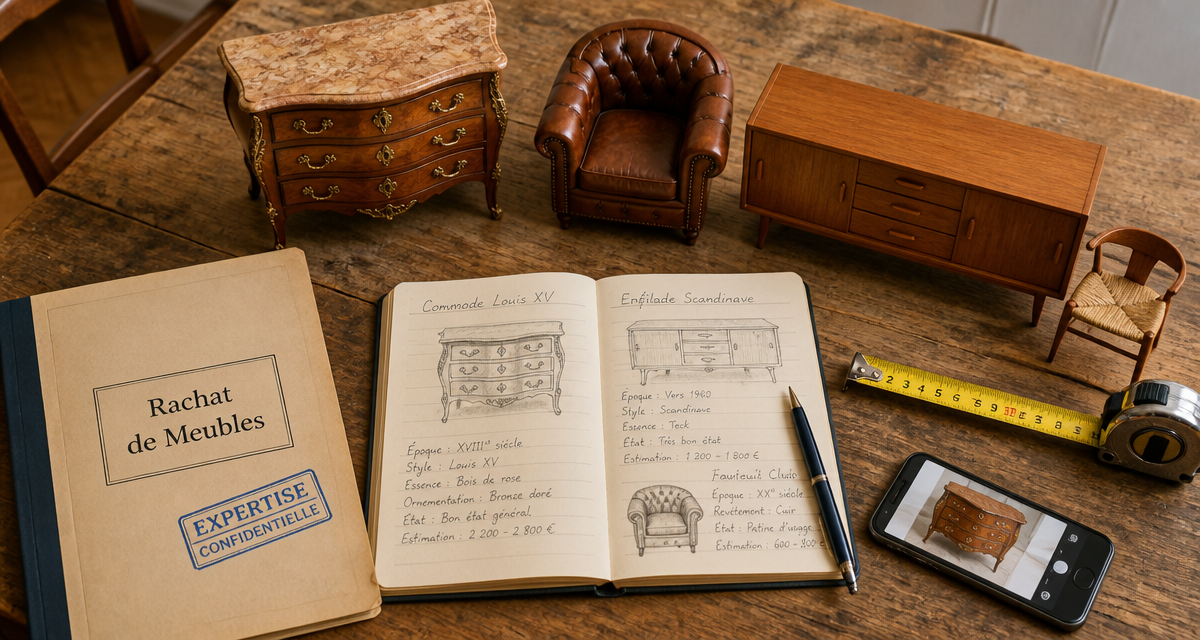 Rachat
de Meubles
EXPERTISE
CONFIDENTIELLE
Commode Louis XV
Époque : XVIIIe siècle
Style : Louis XV
Essence : Bois de rose
Ornementation : Bronze doré
État : Bon état général
Estimation : 2 200 - 2 800 €
Enfilade Scandinave
Époque : Vers 1960
Style : Scandinave
Essence : Teck
État : Très bon état
Estimation : 1 200 - 1 800 €
Fauteuil Club
Époque : XXe siècle
Revêtement : Cuir
État : Patine d'usage
Estimation : 600 - 900 €
2 3 4 5 6